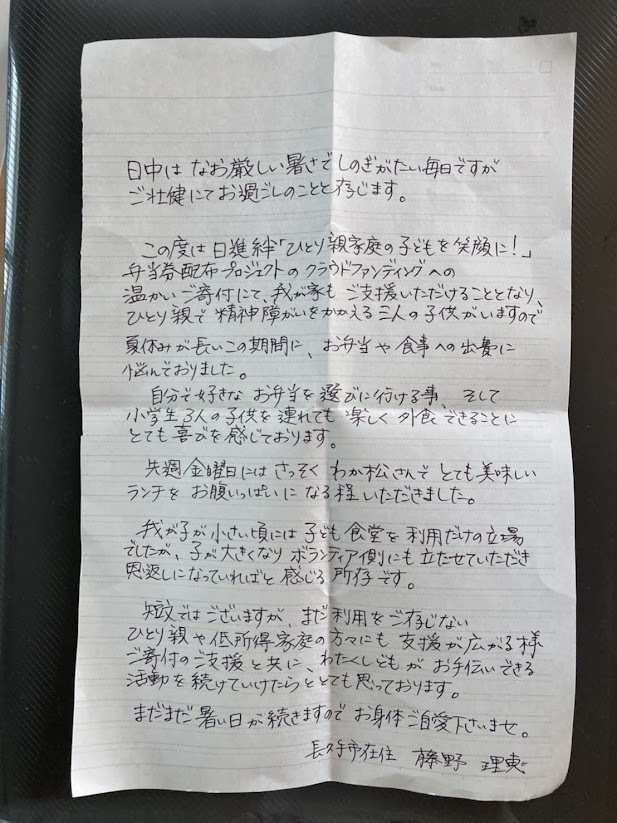 日中は なお厳しい暑さでしのぎがたい毎日ですが
ご壮健にてお過ごしのことと存じます。
この度は日進絆「ひとり親家庭の子どもを笑顔に！」
弁当券配布プロジェクトのクラウドファンディングへの
温かいご寄付にて、我が家もご支援いただけることとなり、
ひとり親で精神障がいをかかえる三人の子供がいますので
夏休みが長いこの期間に、お弁当や食事への出費に
悩んでおりました。
自分で好きなお弁当を選びに行ける事、そして
小学生3人の子供を連れても楽しく外食できることに
とても喜びを感じております。
先週金曜日にはさっそくわか松さんでとても美味しい
ランチをお腹いっぱいになる程いただきました。
我が子が小さい頃には子ども食堂を利用だけの立場
でしたが、子が大きくなりボランティア側にも立たせていただき
恩返しになっていればと感じる所存です。
短文ではございますが、まだ利用をご存じない
ひとり親や低所得家庭の方々にも支援が広がる様
ご寄付のご支援と共に、わたくしどもがお手伝いできる
活動を続けていけたらととても思っております。
まだまだ暑い日が続きますのでお身体ご自愛下さいませ。
長久手市在住 藤野 理恵